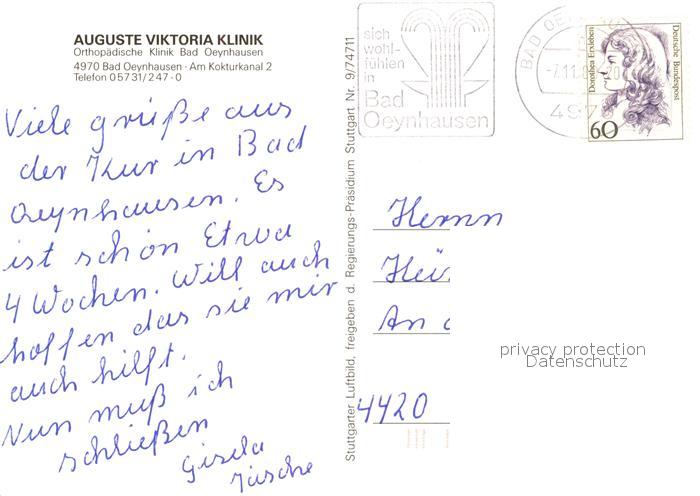 AUGUSTE VIKTORIA KLINIK
Orthopädische Klinik Bad Oeynhausen
4970 Bad Oeynhausen · Am Kokturkanal 2
Telefon 05731/247-0
Viele grüße aus
der Kur in Bad
Oeynhausen. Es
ist schön Etwa
4 Wochen. Will auch
hoffen das sie mir
auch hilft.
Nun muß ich
schließen
Gisela
Jäsche
Stuttgarter Luftbild, freigeben d. Regierungs-Präsidium Stuttgart Nr. 9/74711
sich
wohl-
fühlen
in
Bad
Oeynhausen
BAD OEYNHAUSEN
-7.11.8
497
Dorothea Erxleben
Deutsche Bundespost
60
Herrn
Hei
An d
4420
privacy protection
Datenschutz